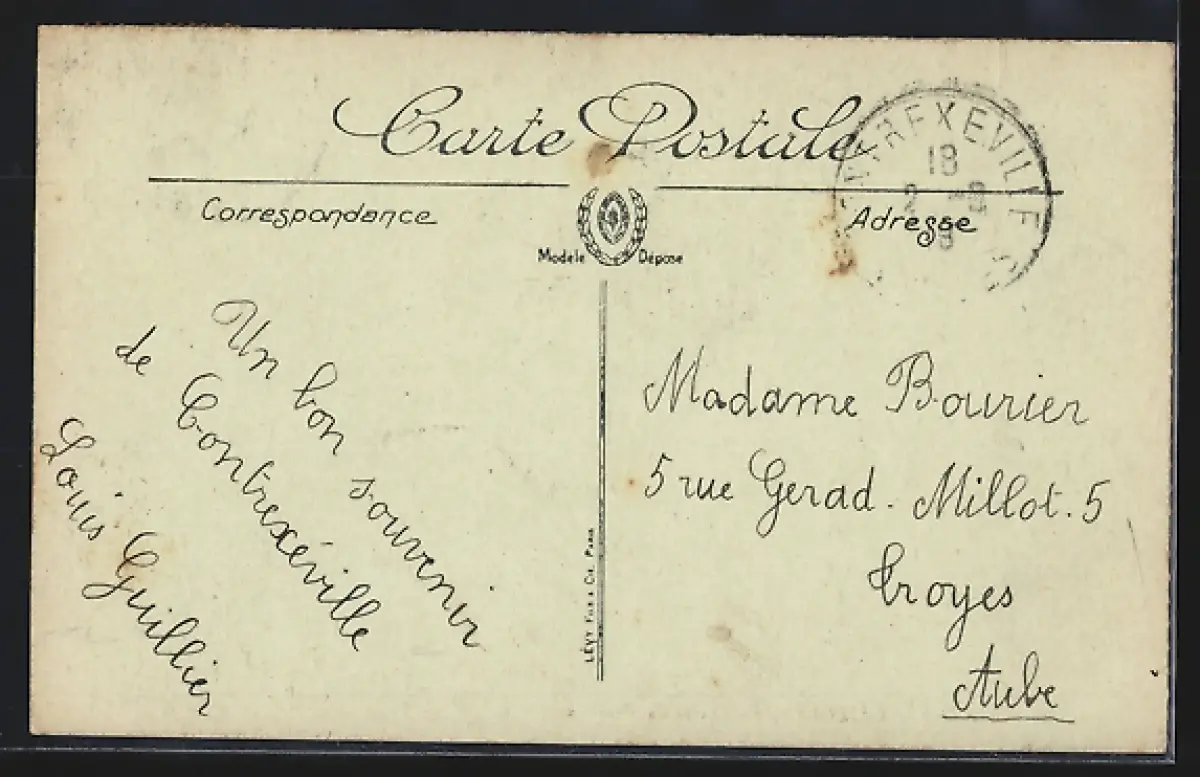 Carte Postale
Correspondance
Adresse
Modèle Déposé
TREXEVILLE
18
2 -8
Un bon souvenir
de Contrexéville
Louis Guillier
LÉVY FILS & CIE, PARIS
Madame Bourier
5 rue Gerad. Millot. 5
Troyes
Aube